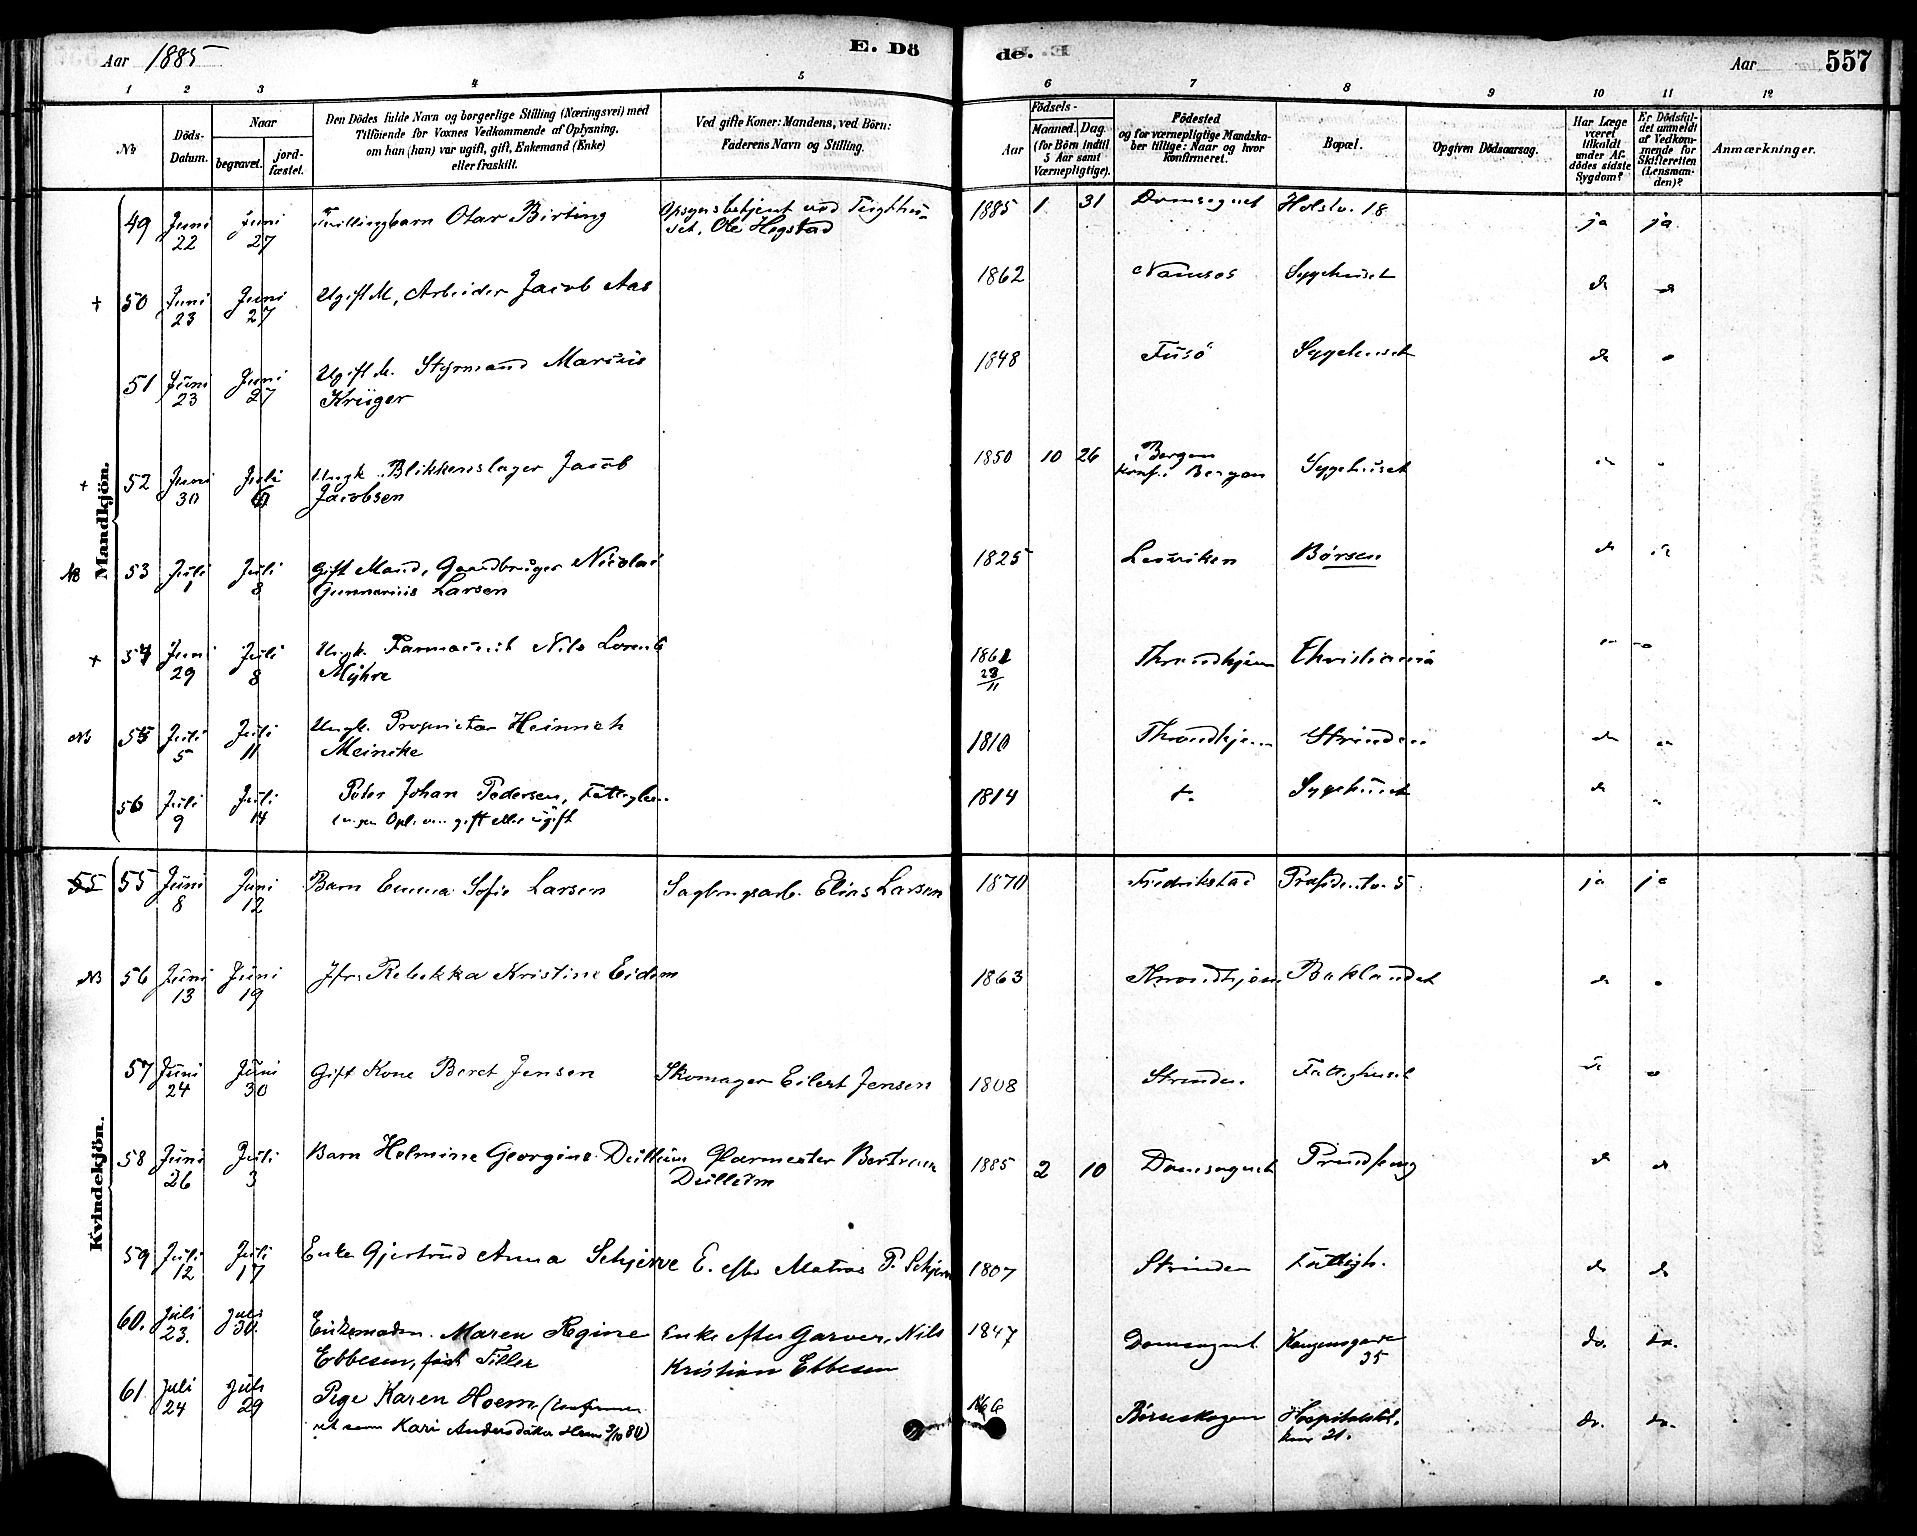 Aar 1885
E. Dö
de.
Aar
557
1 2 3 4 5 6 7 8 9 10 11 12
No
Döds-
Datum.
Naar
begravet.
jord-
fæstet.
Den Dödes fulde Navn og borgerlige Stilling (Næringsvei) med
Tilföiende for Voxnes Vedkommende af Oplysning,
om han (hun) var ugift, gift, Enkemand (Enke)
eller fraskilt.
Ved gifte Koner: Mandens, ved Börn:
Faderens Navn og Stilling.
Födsels-
Aar
Maaned. Dag.
(for Börn indtil
5 Aar samt
Værnepligtige).
Födested
og for værnepligtige Mandska-
ber tillige: Naar og hvor
konfirmeret.
Bopæl.
Opgiven Dödsaarsag.
Har Læge
været
tilkaldt
under Af-
dödes sidste
Sygdom?
Er Dödsfal-
det anmeldt
af Vedkom-
mende for
Skifteretten
(Lensman-
den)?
Anmærkninger.
Mandkjön.
49 Juni 22 Juni 27 Trillingbarn Otar Birting Opsynsbetjent ved Tugthu-
set, Ole Hegstad 1885 1 31 Domsognet Holstv. 18 ja ja
+ 50 Juni 23 Juni 27 Ugift M, Arbeider Jacob Aas 1862 Namsos Sygehuset do
51 Juni 23 Juni 27 Ugift M. Styrmand Marius
Krüger 1848 Sygehuset do
+ 52 Juni 30 Juli Ungk. Blikkenslager Jacob
Jacobsen 1850 10 26 Bergen
konf. i Bergen Sygehuset
NB 53 Juli 1 Juli 8 Gift Mand, Gaardbruger Nicolai
Gunnarius Larsen 1825 Leuviken Börsen do
+ 54 Juni 29 Juli 8 Ungk. Farmaceut Nils Lorents
Myhre 1861
23/11 Throndhjem Christiania
NB 55 Juli 5 Juli 11 Ungk. Proprietær Heinrich
Meinike 1810 Throndhjem Strinden do
56 Juli 9 Juli 14 Peter Johan Pedersen, Fattiglem
(ingen Opl. om gift eller ugift 1814 Sygehuset do
Kvindekjön.
55 55 Juni 8 Juni 12 Barn Emma Sofie Larsen Sagbrugsarb. Elias Larsen 1870 Fredrikstad Præsidentv. 5 ja ja
NB 56 Juni 13 Juni 19 Jfr. Rebekka Kristine Eidem 1863 Throndhjem Baklandet do
57 Juni 24 Juni 30 Gift Kone Beret Jensen Skomager Eilert Jensen 1808 Strinden Fattighuset
58 Juni 26 Juli 3 Barn Holmine Georgine Dullum Glarmester Bertram
Dullum 1885 2 10 Domsognet do
59 Juli 12 Juli 17 Enke Gjertrud Anna Schjerve E. efter Matros P. Schjerve 1807 Strinden Fattigh. do do
60. Juli 23. Juli 30. Enkemadm. Maren Regine
Ebbesen, född Tiller Enke efter Garver, Nils
Kristian Ebbesen 1847 Domsognet Kongensgade
35 do. do.
61 Juli 24 Juli 29 Pige Karen Hoem (konfirme-
ret som Kari Andersdatter Hoem 3/10 80) 1866 Börseskogen Hospitalslök-
ken 21. do. do.